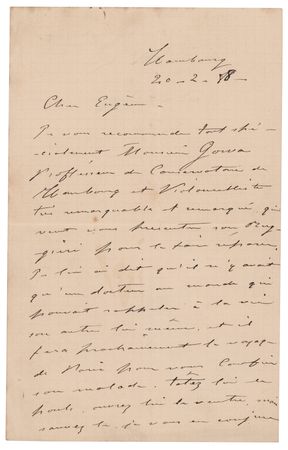 Hambourg
20-2-98-
Cher Eugène-
Je vous recommande tout spé-
cialement Monsieur Gowa
Professeur du Conservatoire de
Hambourg et Violoncelliste
très remarquable et remarqué qui
veut vous présenter son Rug-
gieri pour le faire réparer.
Je lui ai dit qu'il n'y avait
qu'un docteur au monde qui
pouvait rappeler à la vie
son autre lui même, et il
fera prochainement le voyage
de Paris pour vous confier
son malade. tâtez lui le
pouls, ouvrez lui le ventre, mais
sauvez le, je vous en conjure